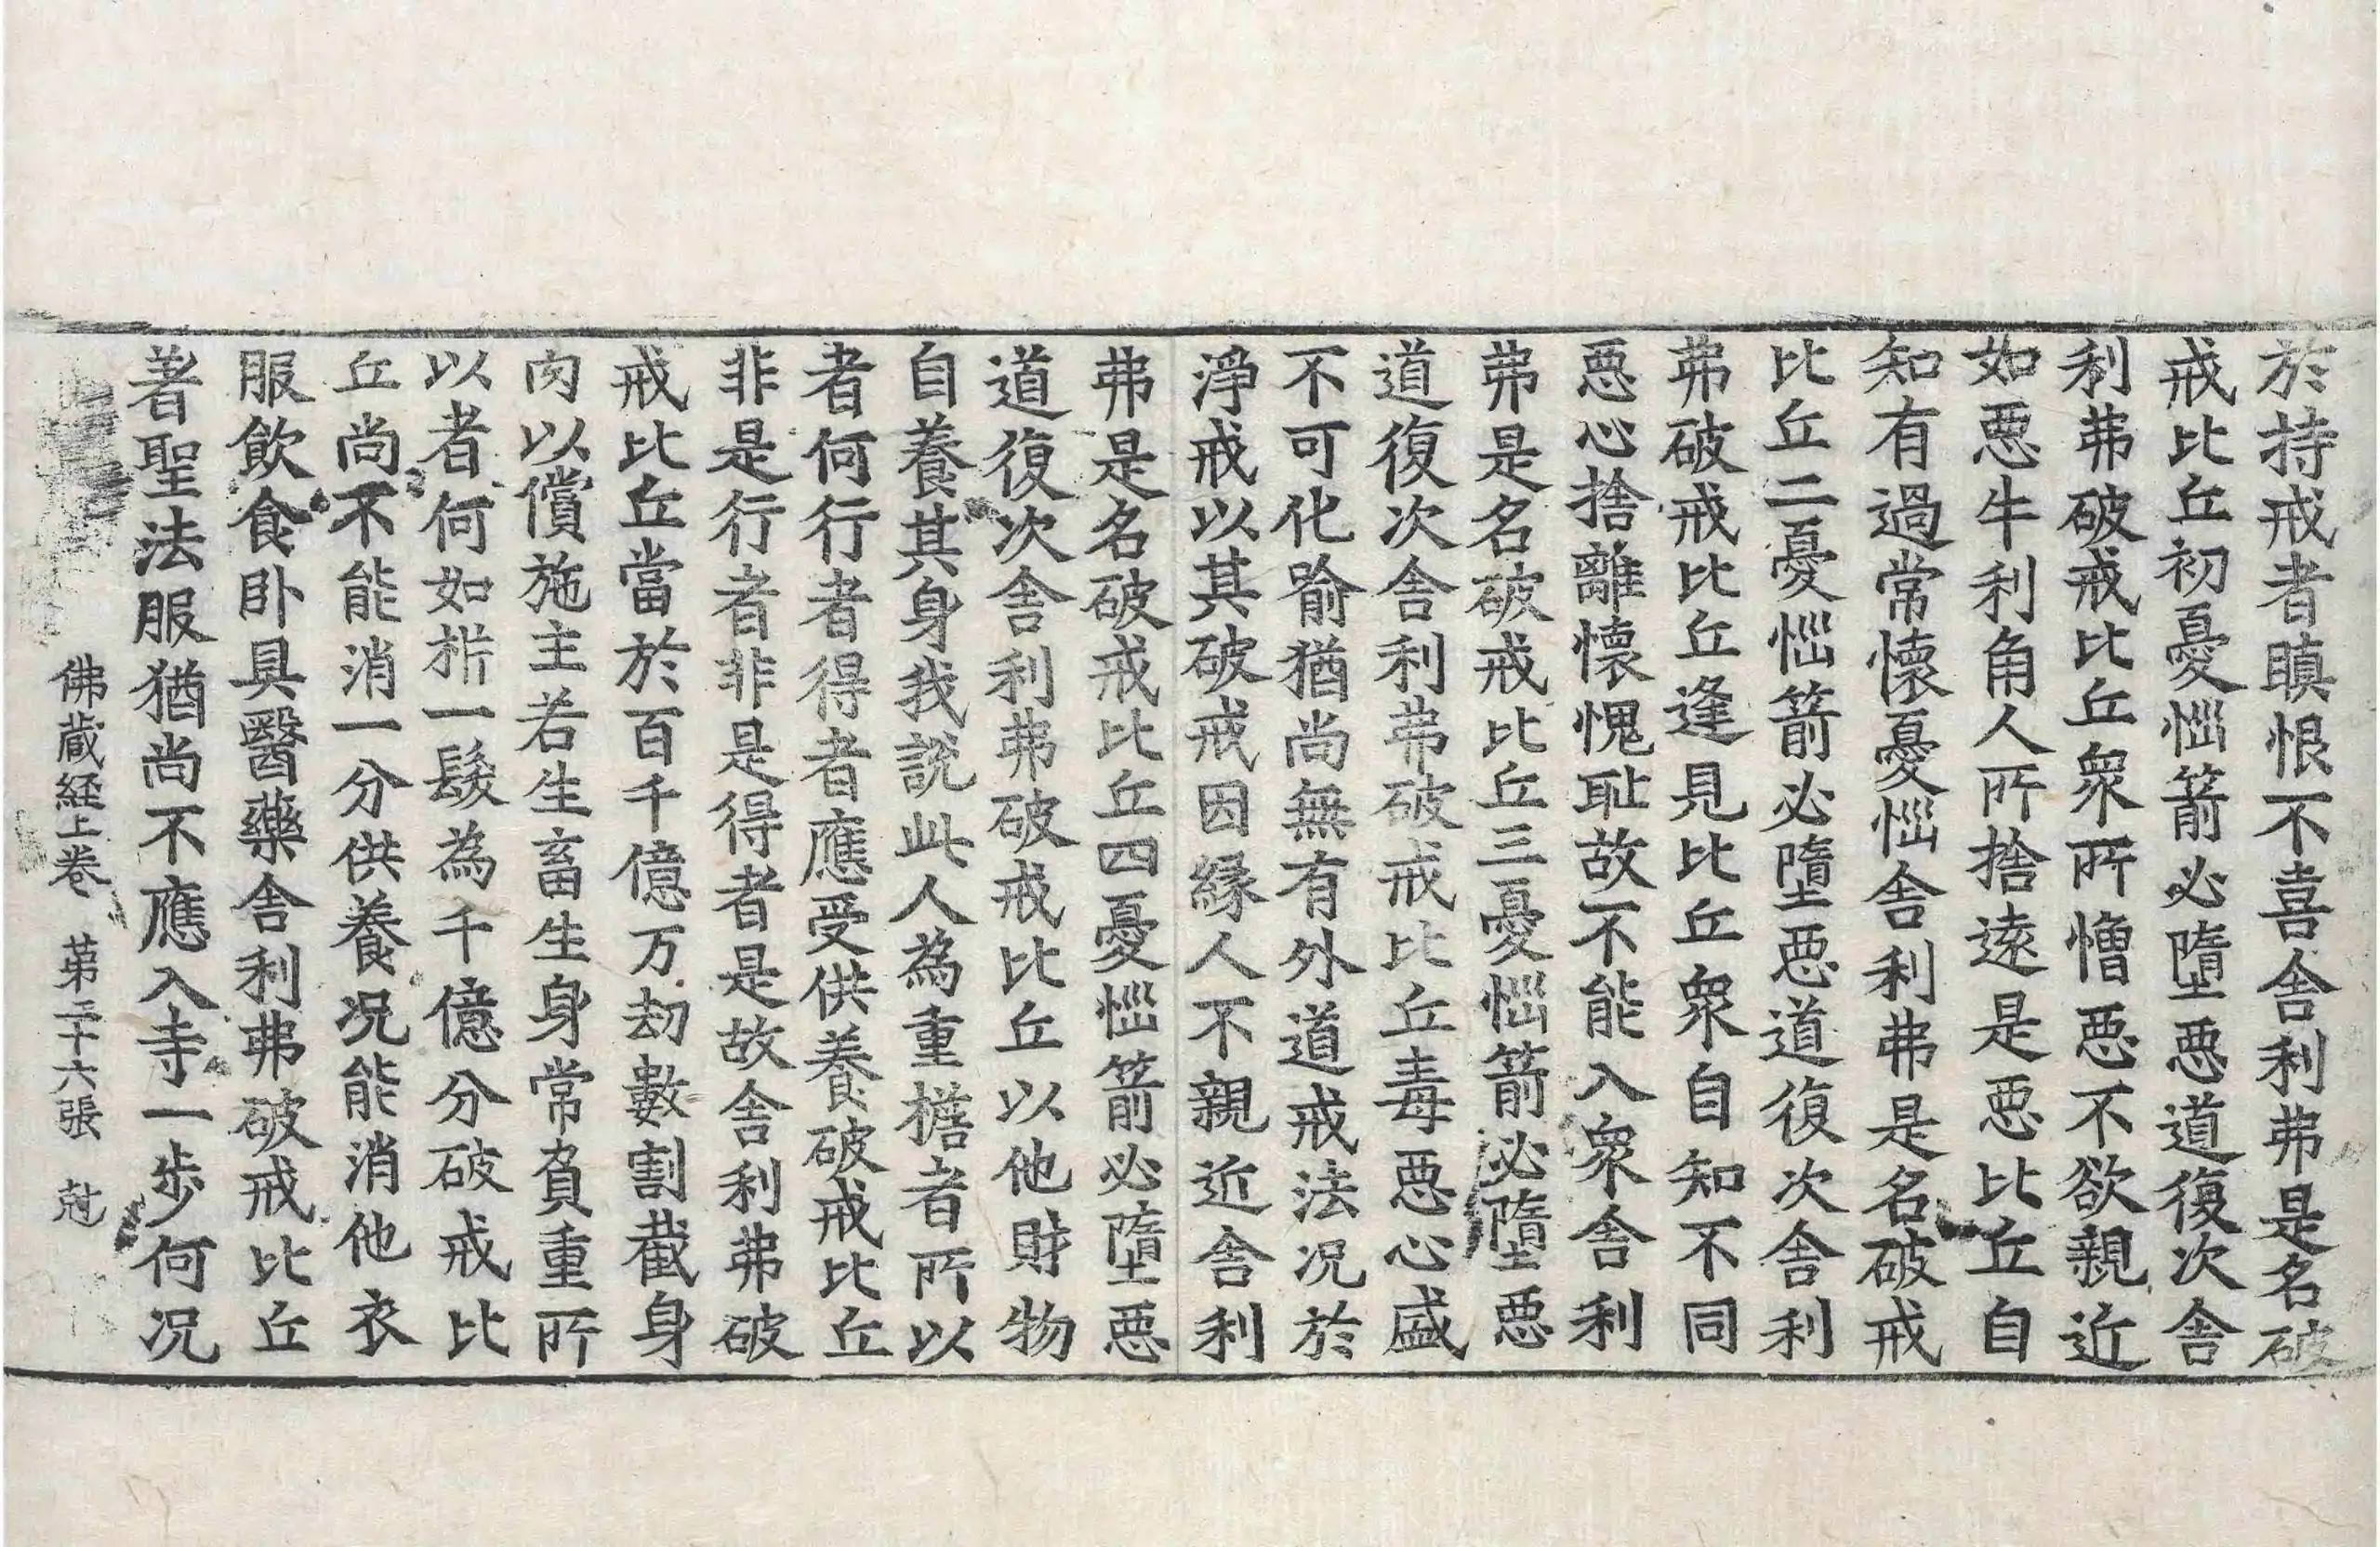 於持戒者瞋恨不喜舎利弗是名破
戒比丘初憂惱箭必墮惡道復次舎
利弗破戒比丘衆所憎惡不欲親近
如惡牛利角人所捨遠是惡比丘自
知有過常懷憂惱舎利弗是名破戒
比丘二憂惱箭必墮惡道復次舎利
弗破戒比丘逢見比丘衆自知不同
惡心捨離懷愧耻故不能入衆舎利
弗是名破戒比丘三憂惱箭必墮惡
道復次舎利弗破戒比丘毒惡心盛
不可化喻猶尚無有外道戒法況於
淨戒以其破戒因緣人不親近舎利
弗是名破戒比丘四憂惱箭必墮惡
道復次舎利弗破戒比丘以他財物
自養其身我說此人為重擔者所以
者何行者得者應受供養破戒比丘
非是行者非是得者是故舎利弗破
戒比丘當於百千億万劫數割截身
肉以償施主若生畜生身常負重所
以者何如㭊一髮為千億分破戒比
丘尚不能消一分供養況能消他衣
服飲食卧具醫藥舎利弗破戒比丘
著聖法服猶尚不應入寺一步何況
佛蔵経上巻 苐二十六張 尅